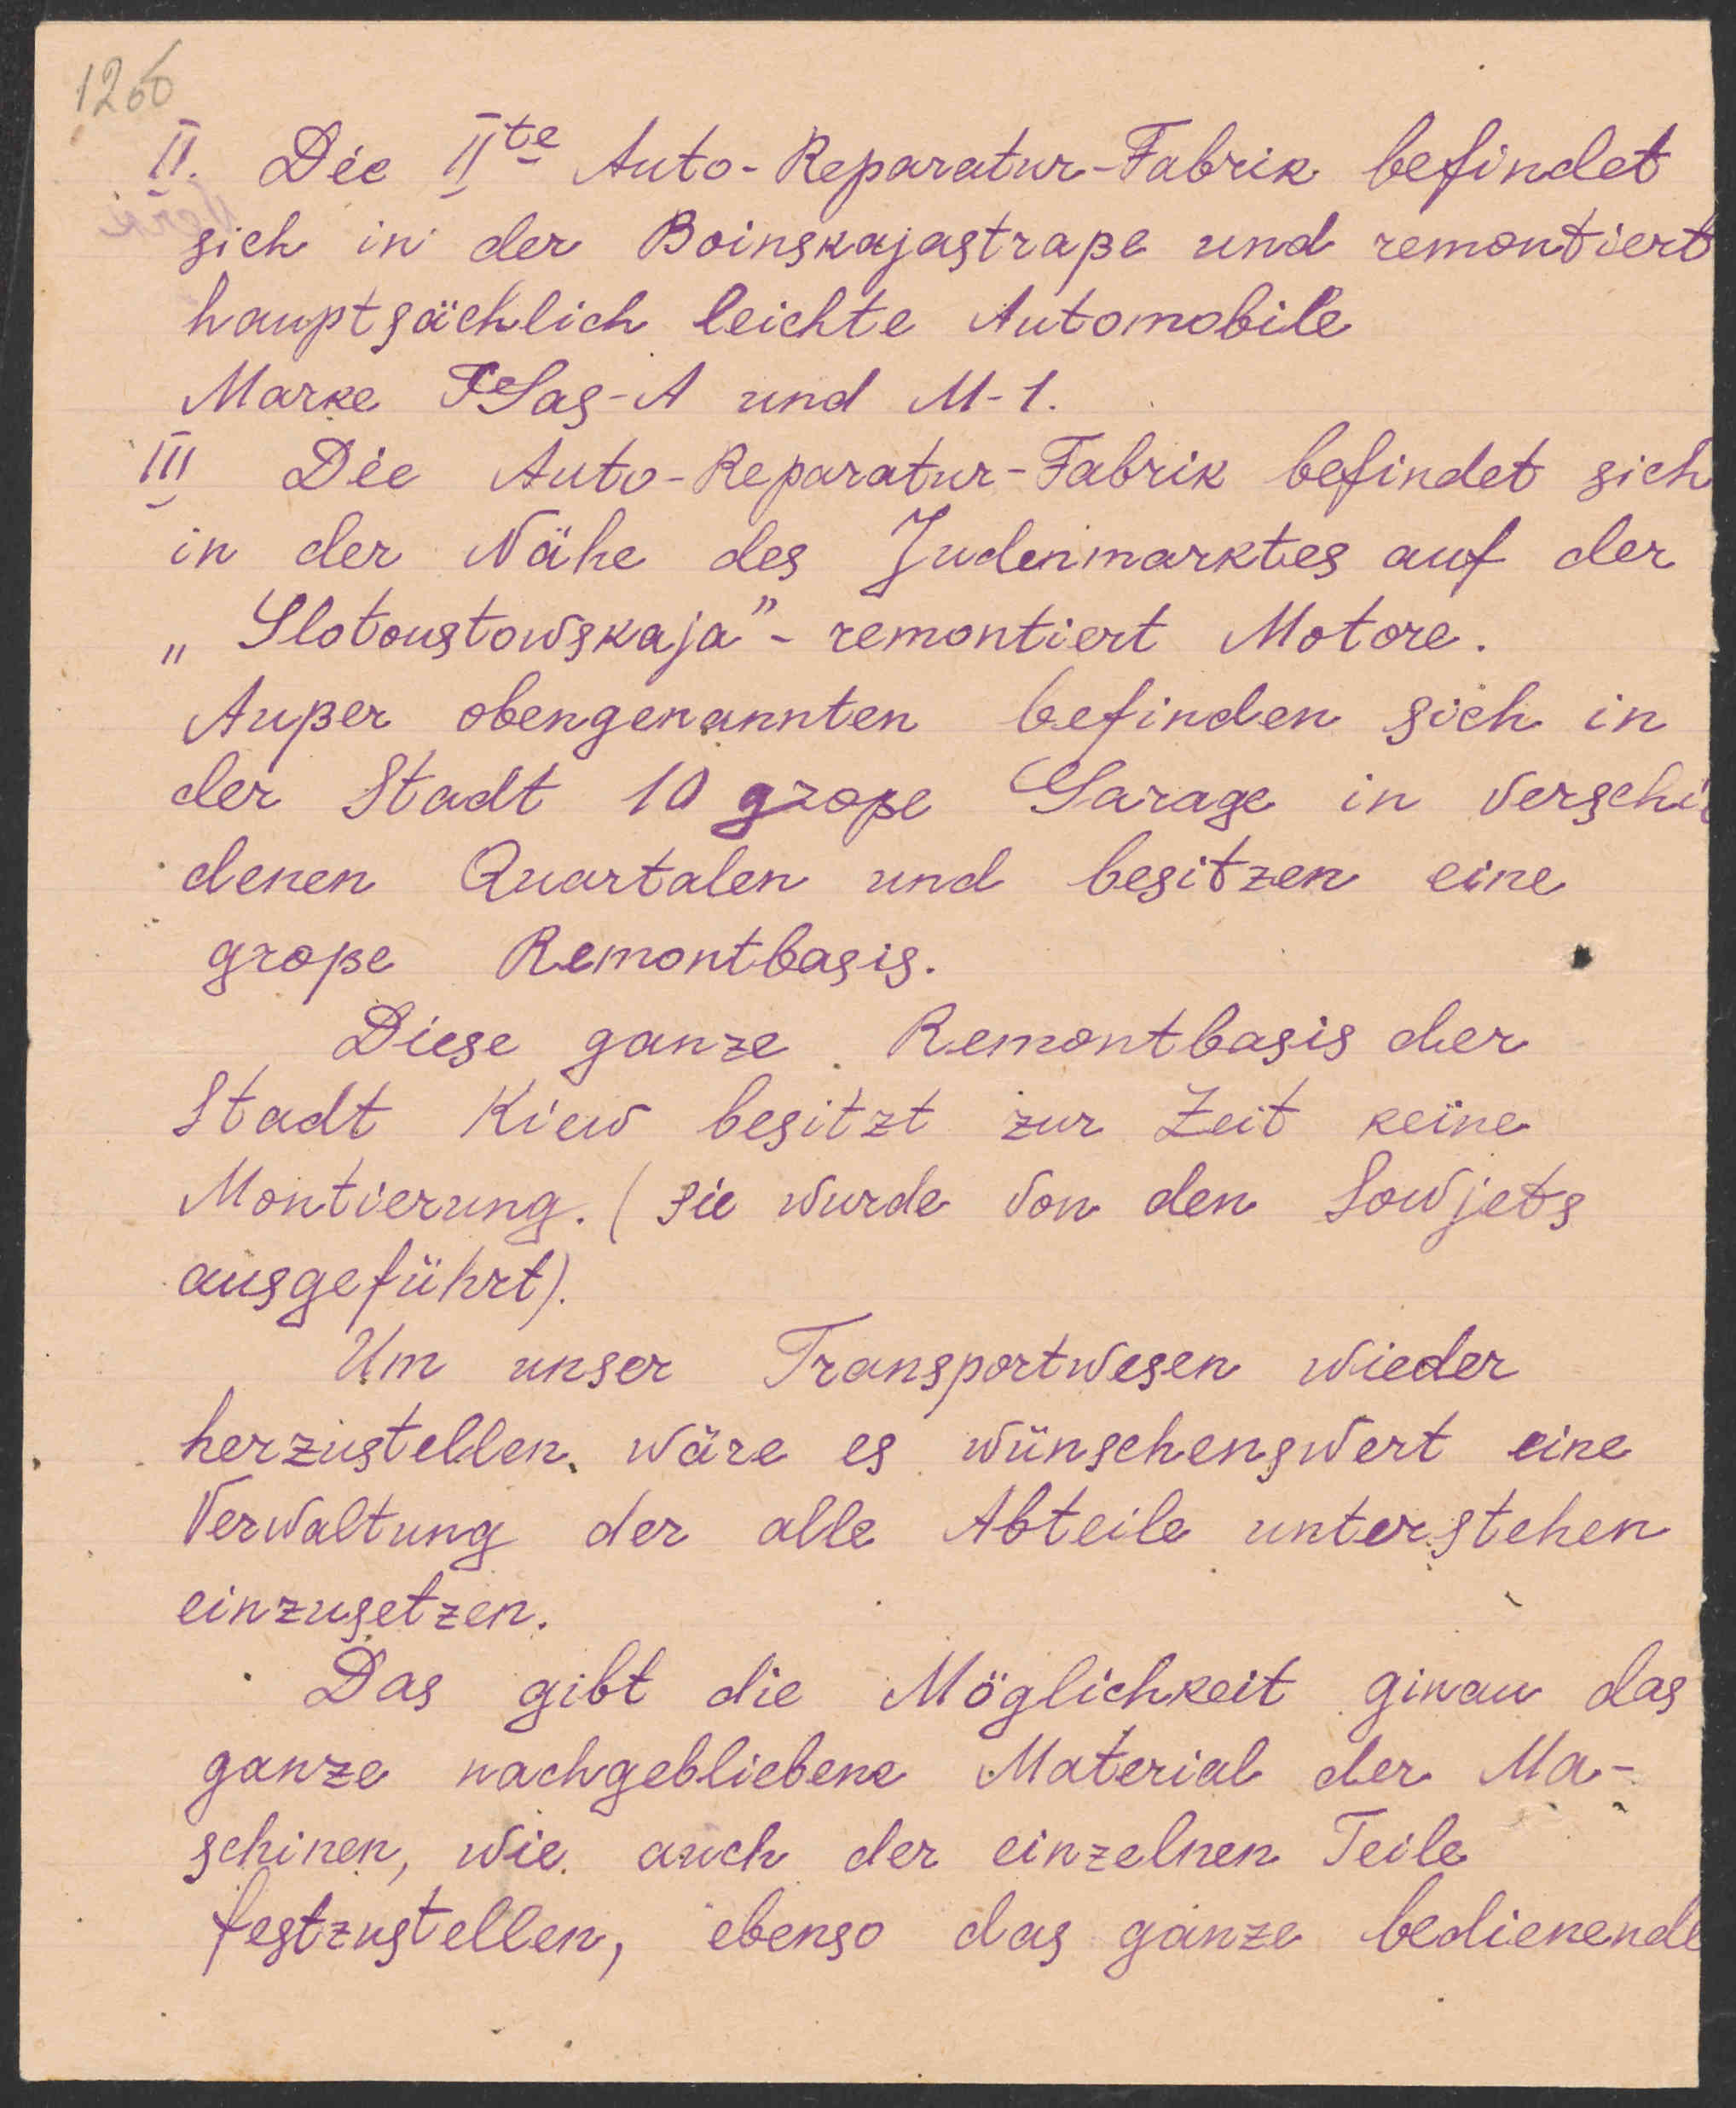 126
II. Die IIte Auto-Reparatur-Fabrik befindet
sich in der Boinskajastraße und remontiert
hauptsächlich leichte Automobile
Marke Gas-A und M-1.
III Die Auto-Reparatur-Fabrik befindet sich
in der Nähe des Judenmarktes auf der
„Slotoustowskaja" - remontiert Motore.
Außer obengenannten befinden sich in
der Stadt 10 große Garage in verschie
denen Quartalen und besitzen eine
große Remontbasis.
Diese ganze Remontbasis der
Stadt Kiew besitzt zur Zeit keine
Montierung. (sie wurde von den Sowjets
ausgeführt).
Um unser Transportwesen wieder
herzustellen wäre es wünschenswert eine
Verwaltung der alle Abteile unterstehen
einzusetzen.
Das gibt die Möglichkeit ginau das
ganze nachgebliebene Material der Ma-
schinen, wie auch der einzelnen Teile
festzustellen, ebenso das ganze bedienende